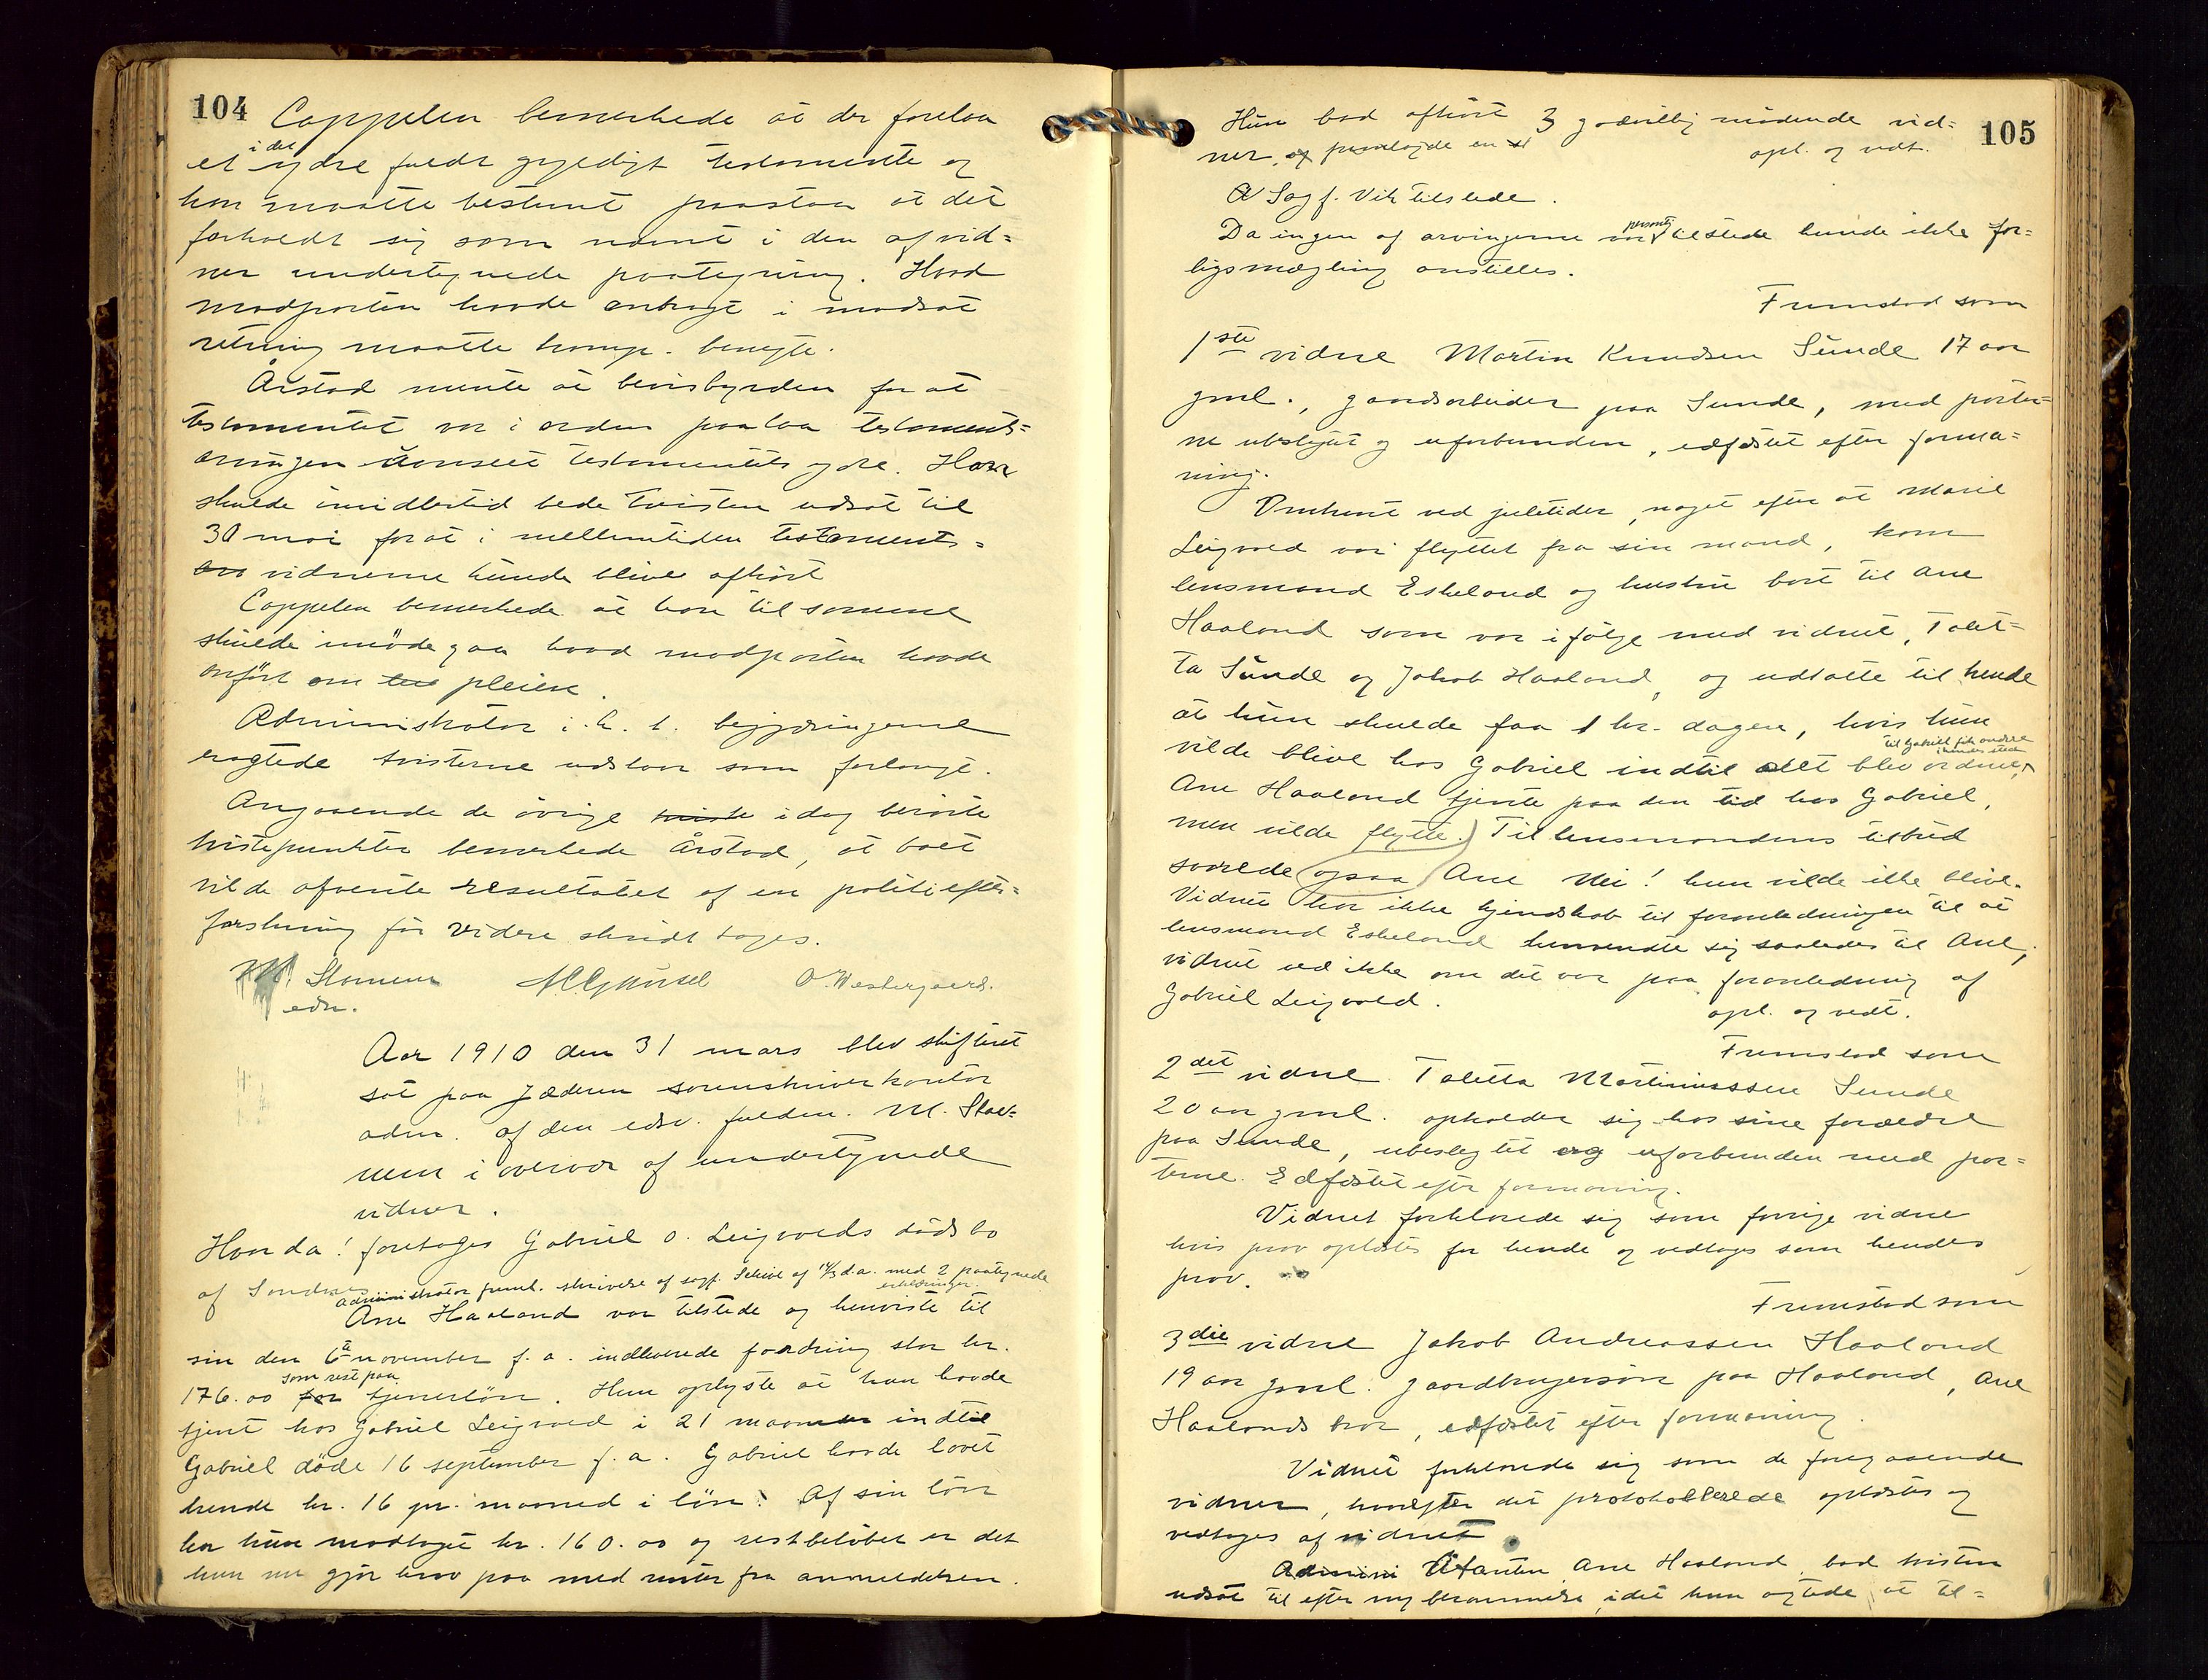 104
Cappelen bemerkede at der forelaa
et i det ydre fuldt gyldigt testamente og
han maatte bestemt paastaa at det
forholdt sig som nævnt i den af vid=
ner undertegnede paategning. Hvad
modparten havde anbragt i modsat
retning maatte komp. benegte.
Årstad mente at bevisbyrden for at
testamentet var i orden paalaa testaments=
arvingen uanseet testamentets ydre. Han
skulde imidlertid bede tvisten udsat til
30 mai forat i mellemtiden testaments=
vidnerne kunde blive afhört
Cappelen bemerkede at han til samme
skulde imödegaa hvad modparten havde
anfört om pleien.
Administrator i. h. t. begjæringerne
eragtede tvisterne udsatte som forlangt.
Angaaende de övrige tviste idag berörte
tvistepunkter bemerkede Årstad, at boet
vilde afvente resultatet af en politiefter=
forskning för videre skridt tages.
Stornem
edsv.
O. Westergaard.
Aar 1910 den 31 mars blev skifteret
sat paa Jæderen sorenskriverkontor
adm. af den edsv. fuldm. M. Stor=
nem i overvær af undertegnede
vidner.
Hvor da! foretoges Gabriel O. Leigvolds dödsbo
af Sandnes
Administrator freml. skrivelse af sagf. Schive af 14/3 d.a. med 2 paategnede
erklæringer.
Ane Haaland var tilstede og henviste til
sin den 6te november f. a. indleverede fordring stor kr.
176.00 for som rest paa tjenerlön. Hun oplyste at hun havde
tjent hos Gabriel Leigvold i 21 maaneder indtil
Gabriel döde 16 september f. a. Gabriel havde lovet
hende kr. 16 pr. maaned i lön. Af sin lön
har hun modtaget kr. 160.00 og restbelöbet er det
hun nu gjör krav paa med renter fra anmeldelsen.
105
Hun bad afhört 3 godvillig mödende vid=
ner, og fremlagde en
opl. og vedt.
Sagf. Vik tilstede.
Da ingen af arvingerne var personlig tilstede kunde ikke for=
ligsmægling anstilles.
Fremstod som
1ste vidne Martin Knudsen Sunde 17 aar
gml., gaardsarbeider paa Sunde, med parter=
ne ubeslegtet og uforbunden, edfæstet efter forma=
ning.
Omkrent ved juletider, noget efter at Marie
Leigvold var flyttet fra sin mand, kom
lensmand Eskeland og hustru bort til Ane
Haaland som var i fölge med vidnet, Talet=
ta Sunde og Jakob Haaland, og udtalte til hende
at hun skulde faa 1 kr. dagen, hvis hun
vilde blive hos Gabriel indtil alt blev ordnet,
til Gabriel fik andre
i hendes sted
Ane Haaland tjente paa den tid hos Gabriel,
men vilde flytte.) Til lensmandens tilbud
svarede ogsaa Ane Nei! hun vilde ikke blive.
Vidnet har ikke kjendskab til foranledningen til at
lensmand Eskeland henvendte sig saaledes til Ane,
vidnet ved ikke om det var paa foranledning af
Gabriel Leigvold.
opl. og vedt.
Fremstod som
2det vidne Taletta Martinussen Sunde
20 aar gml. opholder sig hos sine forældre
paa Sunde, ubeslegtet og uforbunden med par=
terne. Edfæstet efter formaning.
Vidnet forklarede sig som forrige vidne
hvis prov oplæstes for hende og vedtoges som hendes
prov.
Fremstod som
3die vidne Jakob Andreassen Haaland
19 aar gml. gaardbrugersön paa Haaland, Ane
Haalands bror, edfæstet efter formaning.
Vidnet forklarede sig som de foregaaende
vidner, hvorefter det protokollerede oplæstes og
vedtoges af vidnet
Admini Citanten Ane Haaland bad tvisten
udsat til efter ny berammelse, idet hun agtede at til=